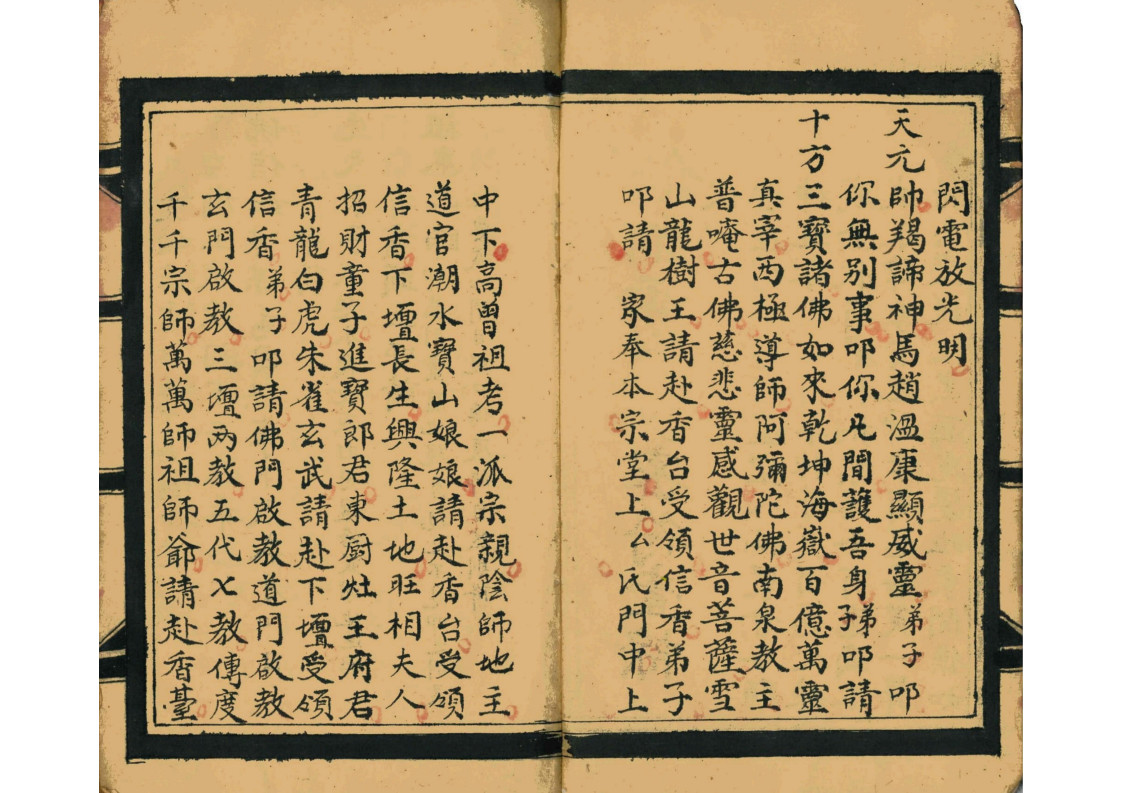 閃電放光明
天元帥羯諦神馬趙溫康顯威靈弟子叩
你無別事叩你凡間護吾身弟子叩請
十方三寶諸佛如來乾坤海嶽百億萬靈
真宰西極導師阿彌陀佛南泉教主
普唵古佛慈悲靈感觀世音菩薩雪
山龍樹王請赴香台受領信香弟子
叩請 家奉本宗堂上厶氏門中上
中下高曾祖考一派宗親陰師地主
道官潮水寶山娘娘請赴香台受領
信香下壇長生興隆土地旺相夫人
招財童子進寶郎君東厨灶王府君
青龍白虎朱雀玄武請赴下壇受領
信香 弟子叩請佛門啟教道門啟教
玄門啟教三壇两教五代七教傳度
千千宗師萬萬師祖師爺請赴香臺